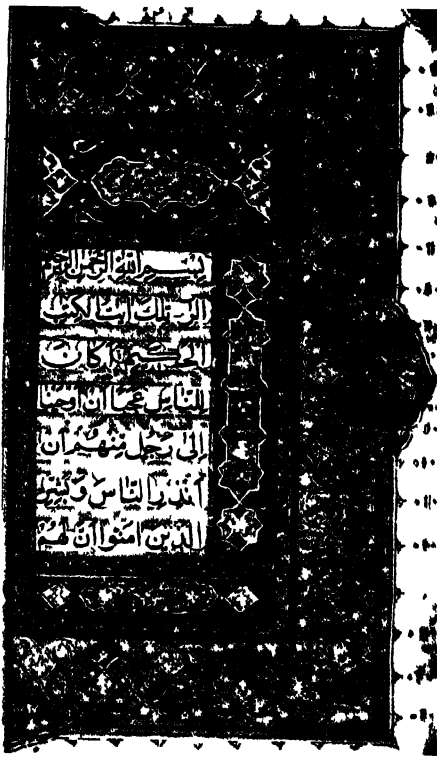 بسم الله الرحمن الرحيم
الر تلك آيات الكتب
الحكيم أكان
للناس عجبا أن أوحينا
إلى رجل منهم أن
أنذر الناس وبشر
الذين آمنوا أن لهم